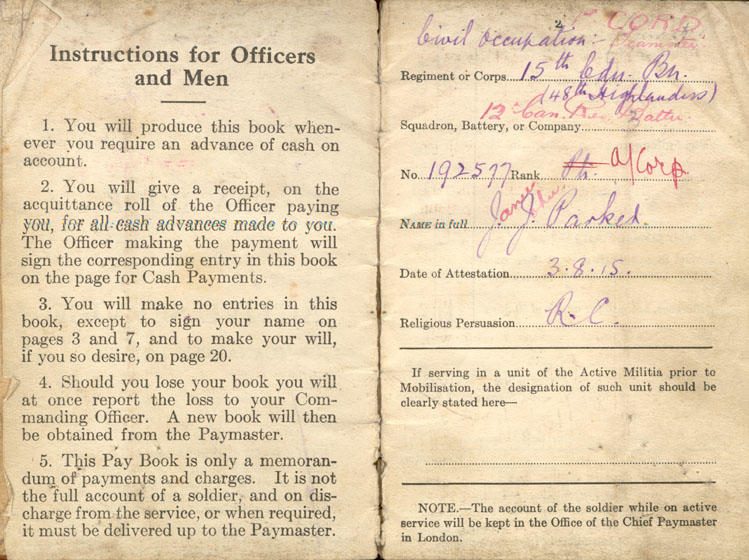 Instructions for Officers
and Men
1. You will produce this book when-
ever you require an advance of cash on
account.
2. You will give a receipt, on the
acquittance roll of the Officer paying
you, for all cash advances made to you.
The Officer making the payment will
sign the corresponding entry in this book
on the page for Cash Payments.
3. You will make no entries in this
book, except to sign your name on
pages 3 and 7, and to make your will,
if you so desire, on page 20.
4. Should you lose your book you will
at once report the loss to your Com-
manding Officer. A new book will then
be obtained from the Paymaster.
5. This Pay Book is only a memoran-
dum of payments and charges. It is not
the full account of a soldier, and on dis-
charge from the service, or when required,
it must be delivered up to the Paymaster.
2
Civil Occupation:- Teamster
Regiment or Corps 15th Cdn. Bn.
(48th Highlanders)
12 Can. Res. Battn.
Squadron, Battery, or Company
No. 192577 Rank Pte. A/Corp
James
NAME in full J. Parker.
Date of Attestation 3.8.15.
Religious Persuasion R.C.
If serving in a unit of the Active Militia prior to
Mobilisation, the designation of such unit should be
clearly stated here—
NOTE.—The account of the soldier while on active
service will be kept in the Office of the Chief Paymaster
in London.